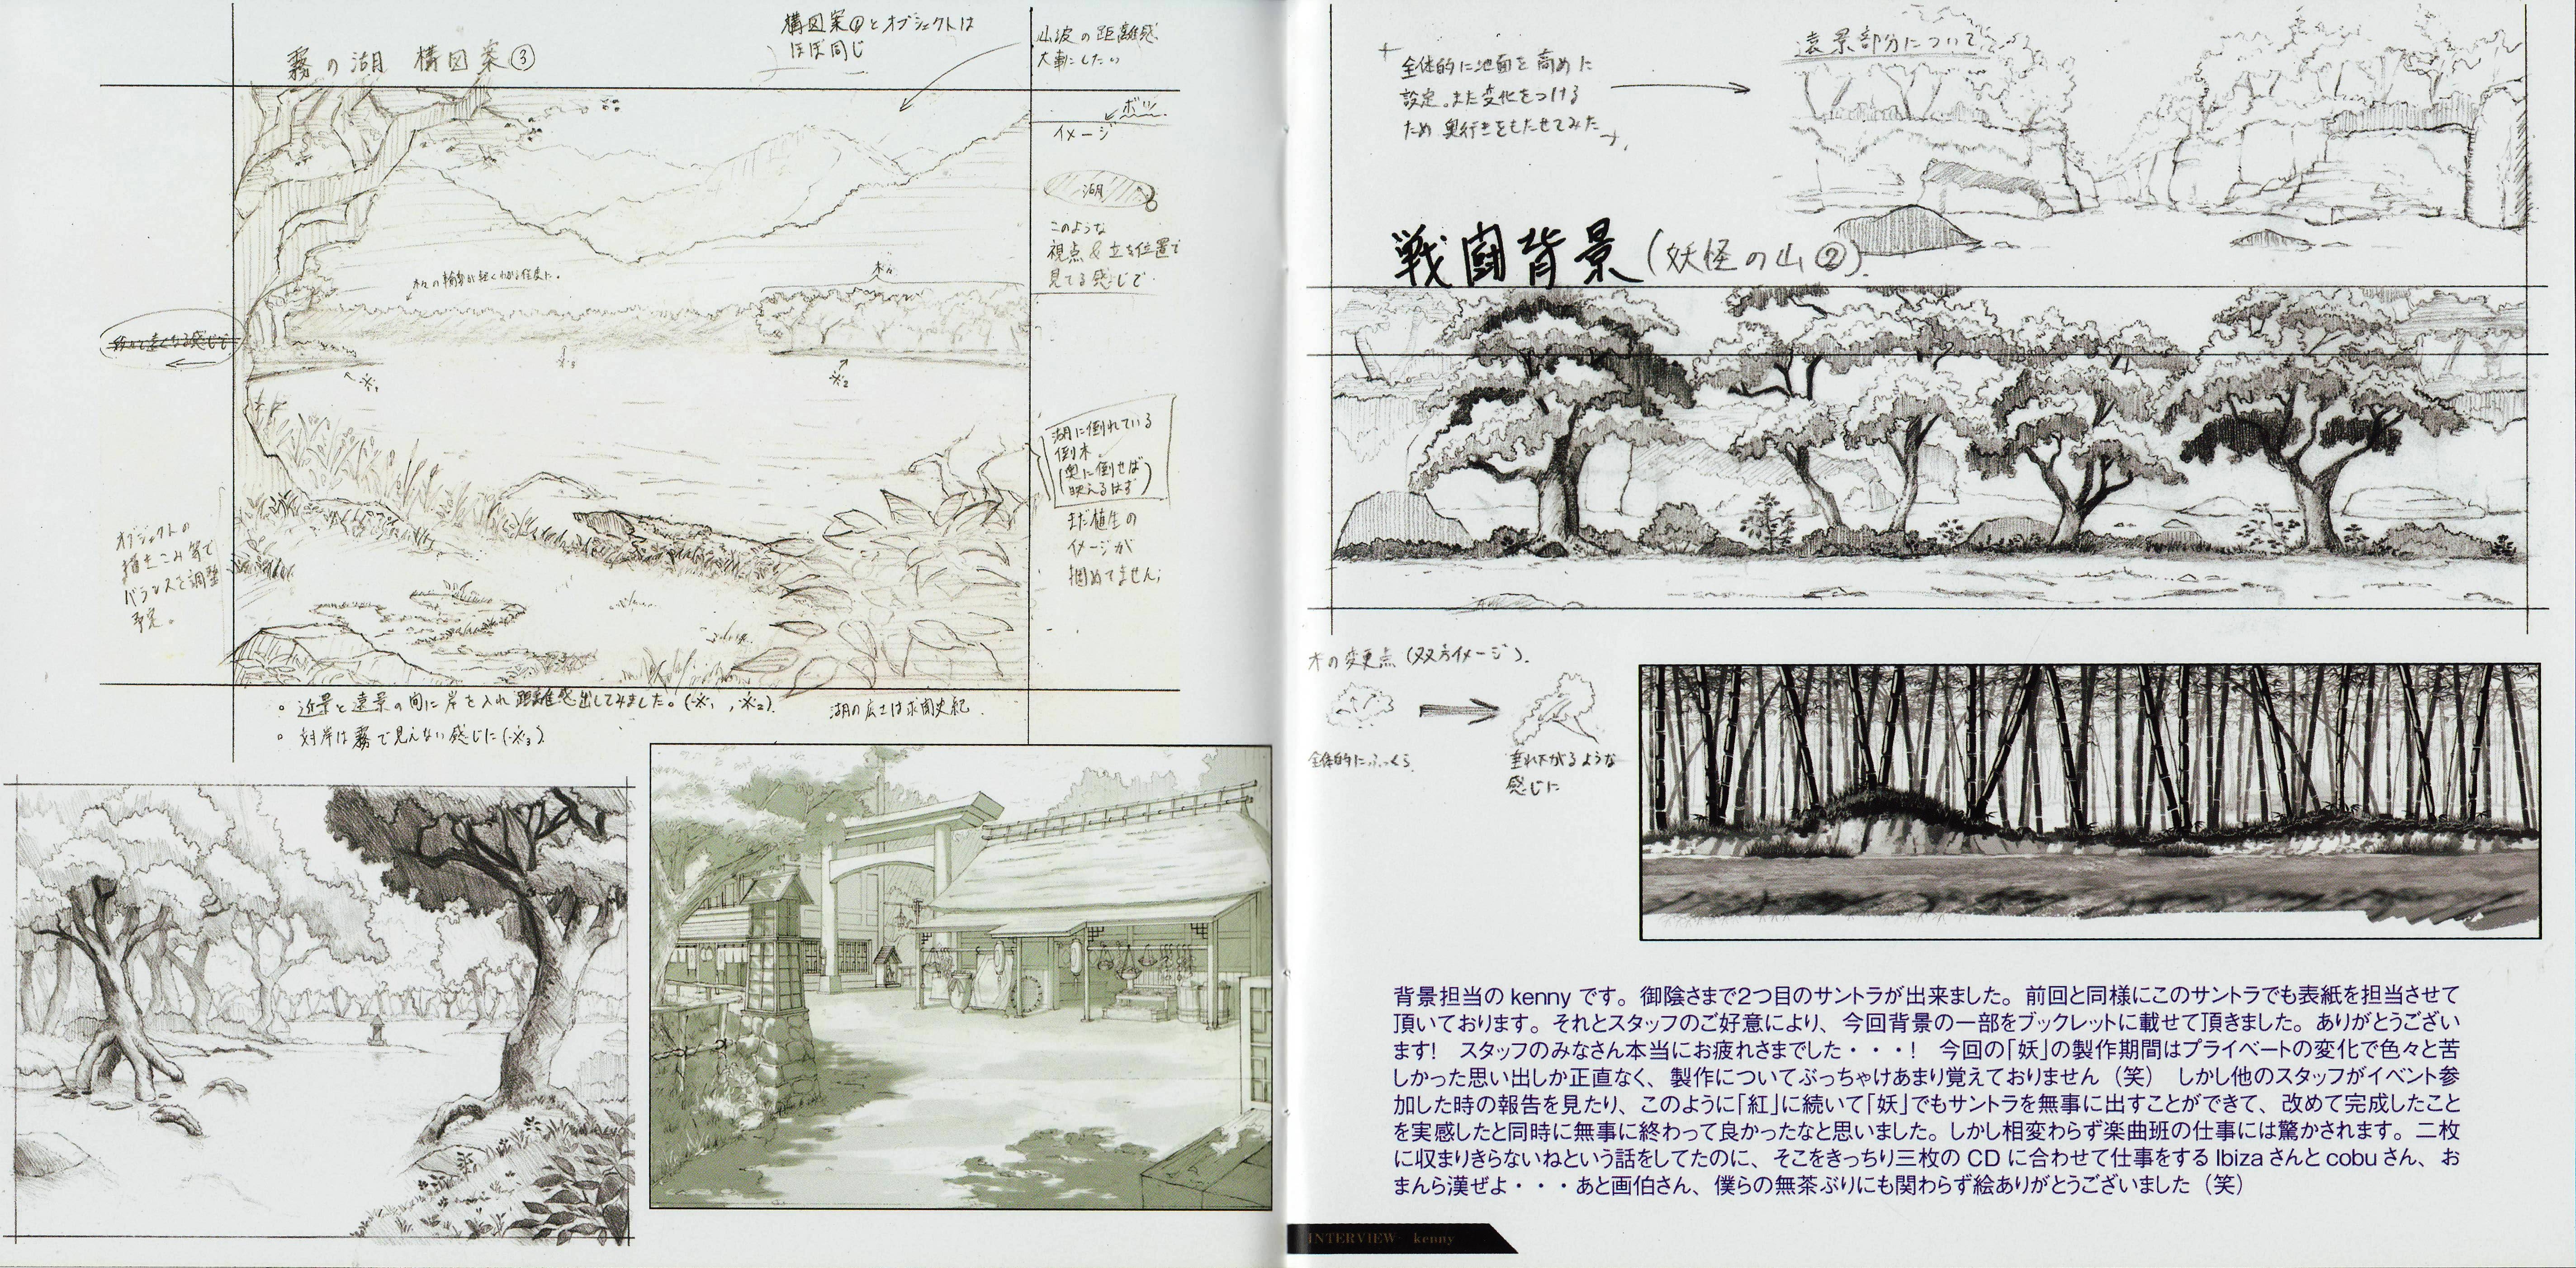 霧の湖 構図案③
構図案①とオブジェクトは
ほぼ同じ
山波の距離感
大事にしたい
ボツ
イメージ
湖
このような
視点&立ち位置で
見てる感じで
木々の輪郭が軽くわかる程度に。
木々
※1
※3
※2
湖に倒れている
倒木
(奥に倒せば
映えるはず)
まだ植生の
イメージが
掴めてません;
オブジェクトの
描きこみ等で
バランスを調整
予定。
。近景と遠景の間に岸を入れ距離感出してみました。(※1,※2)
。対岸は霧で見えない感じに(※3)
湖の広さは求聞史紀
全体的に地面を高めに
設定。また変化をつける
ため奥行きをもたせてみた
遠景部分について
戦闘背景(妖怪の山②)
木の変更点(双方イメージ)
全体的にふっくら
垂れ下がるような
感じに
背景担当の kenny です。御陰さまで2つ目のサントラが出来ました。前回と同様にこのサントラでも表紙を担当させて
頂いております。それとスタッフのご好意により、今回背景の一部をブックレットに載せて頂きました。ありがとうござい
ます! スタッフのみなさん本当にお疲れさまでした・・・! 今回の「妖」の製作期間はプライベートの変化で色々と苦
しかった思い出しか正直なく、製作についてぶっちゃけあまり覚えておりません(笑) しかし他のスタッフがイベント参
加した時の報告を見たり、このように「紅」に続いて「妖」でもサントラを無事に出すことができて、改めて完成したこと
を実感したと同時に無事に終わって良かったなと思いました。しかし相変わらず楽曲班の仕事には驚かされます。二枚
に収まりきらないねという話をしてたのに、そこをきっちり三枚の CD に合わせて仕事をする Ibiza さんと cobu さん、お
まんら漢ぜよ・・・あと画伯さん、僕らの無茶ぶりにも関わらず絵ありがとうございました(笑)
INTERVIEW kenny